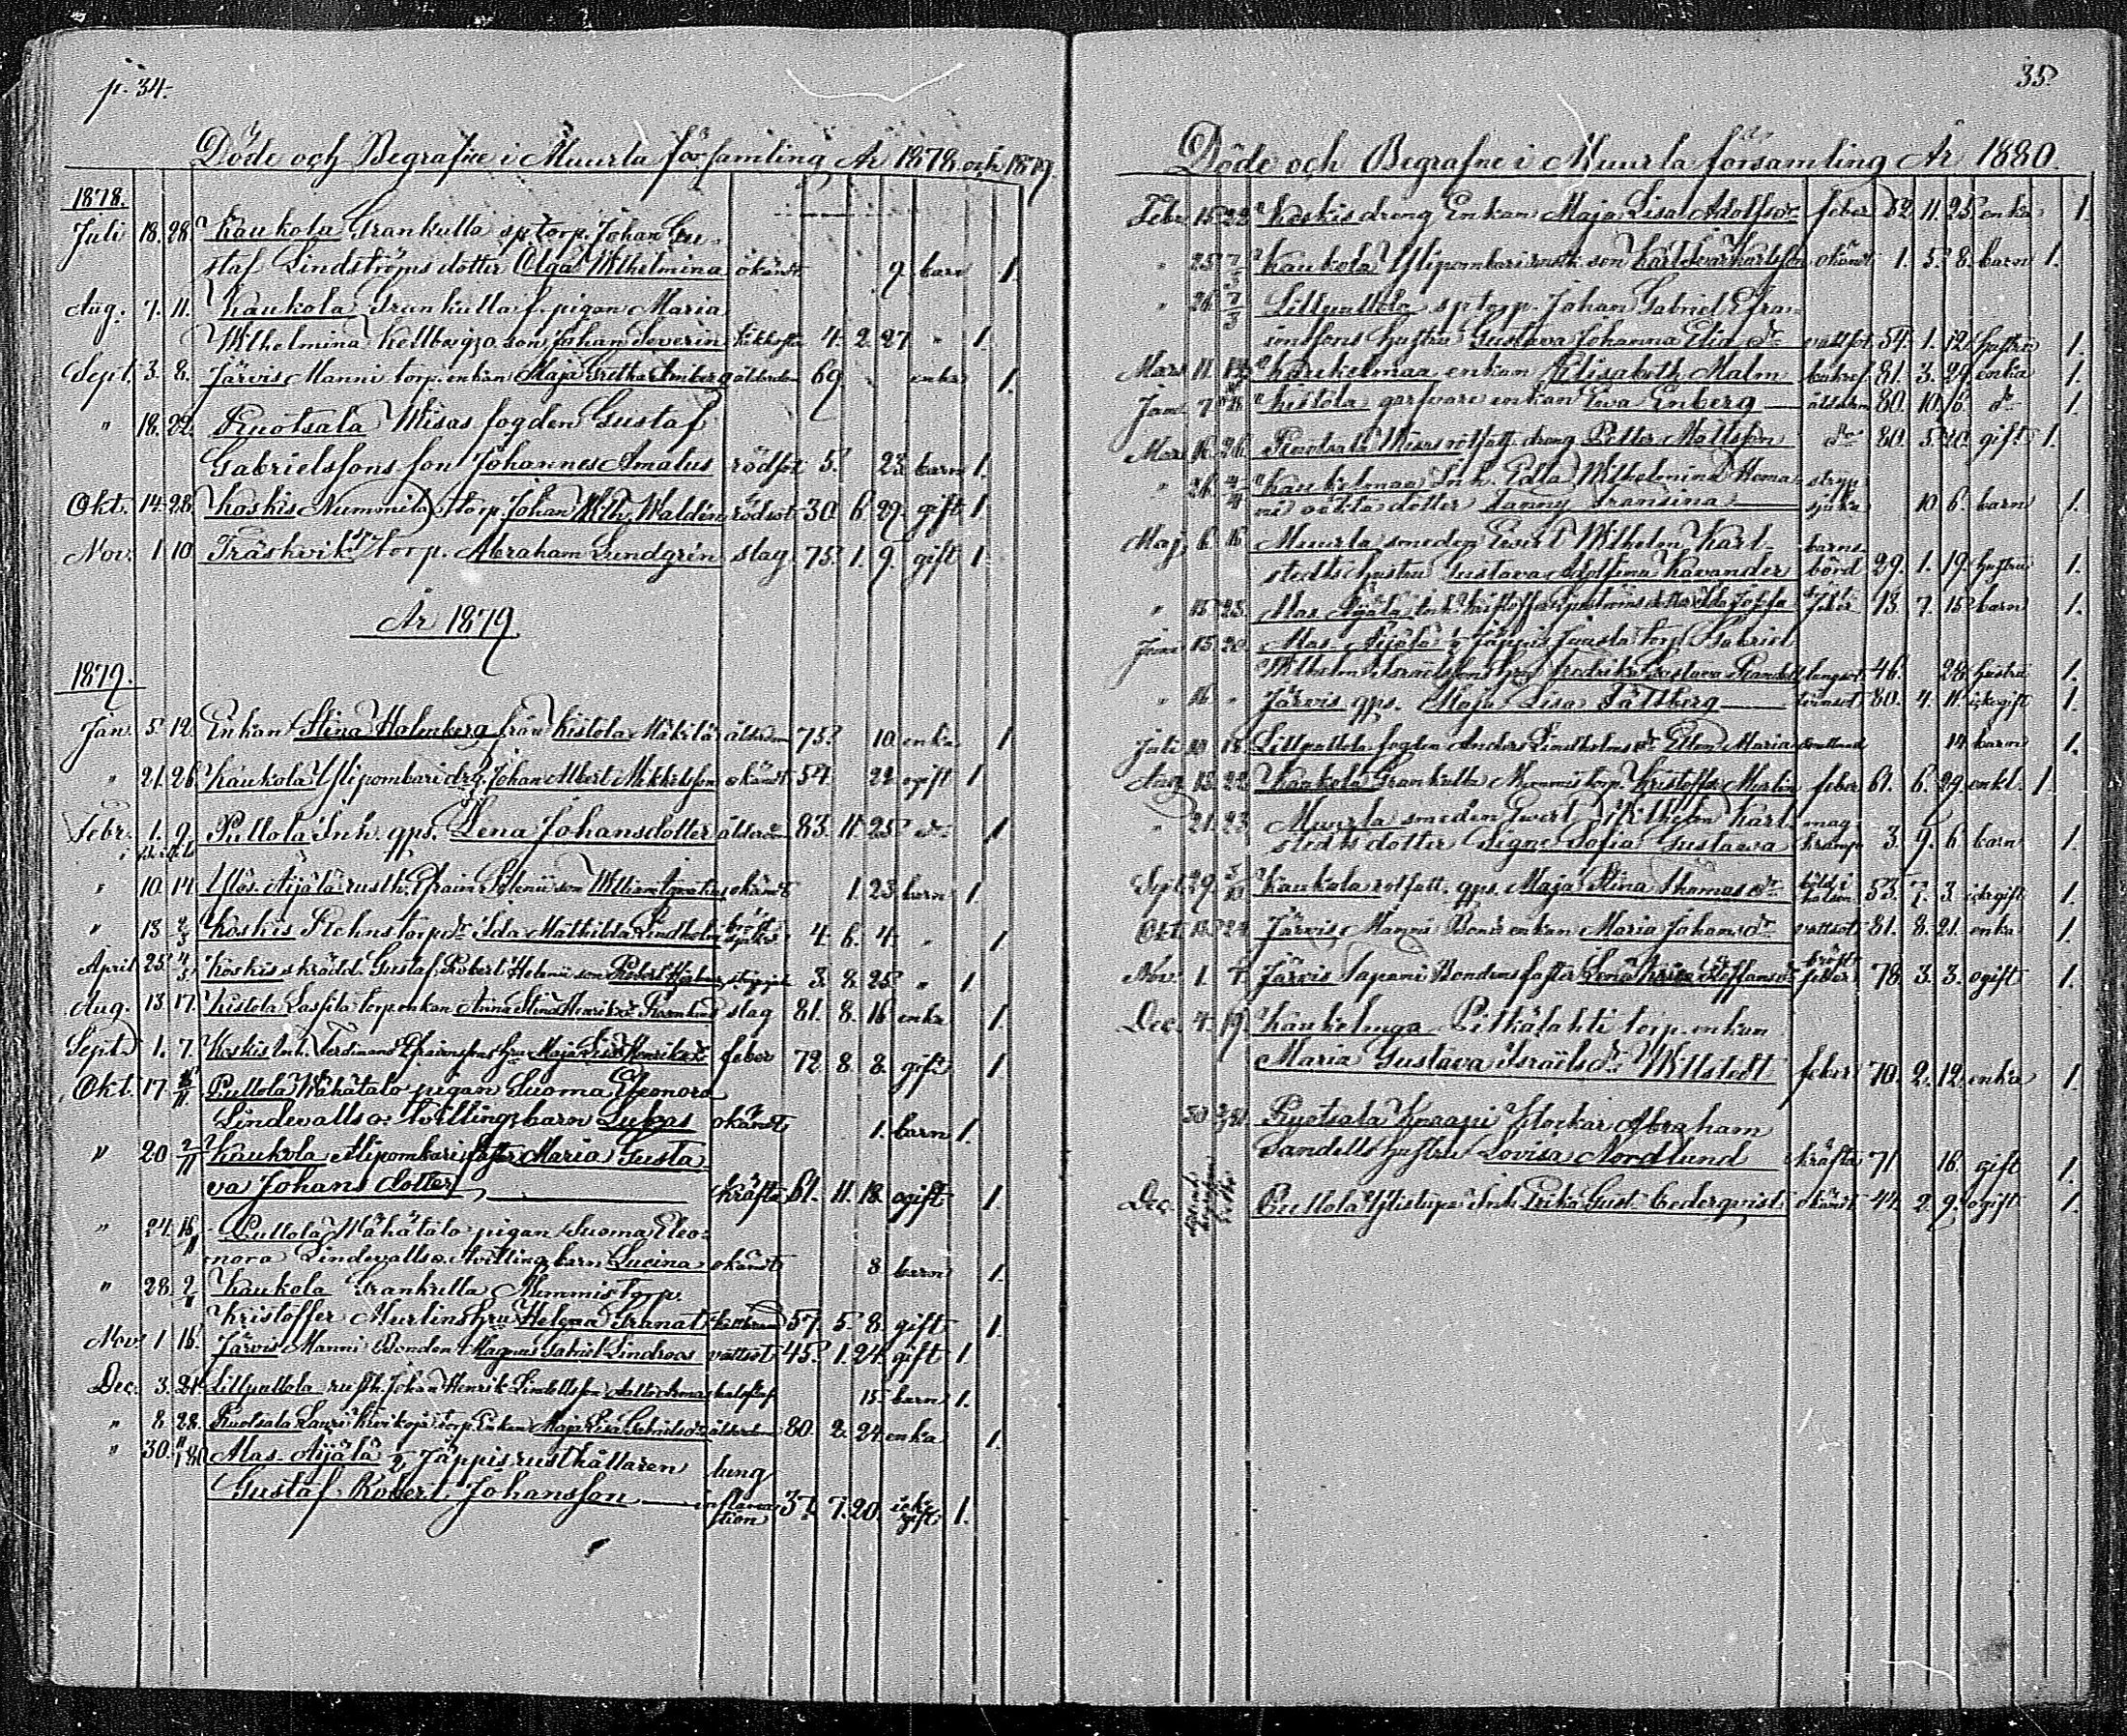 p. 34.
Döde och Begrafne i Muurla församling År 1878 och 1879.
1878.
Juli 18. 28. Kaukola Grankulla sptorp. Johan Gu-
staf Lindströms dotter Olga Wilhelmina okändt 9. barn 1.
Aug. 7. 11. Kaukola Grankulla f. pigan Maria
Wilhelmina Kellbergs o. son Johan Severin kikhosta 4. 2. 27 " 1.
Sept. 3. 8. Järvis Manni torp. enkan Maja Gretha Amberg ålderdom 69. enka 1.
" 18. 22. Ruotsala Wisas fogden Gustaf
Gabrielssons son Johannes Amatus rödsot 5. 23. barn 1.
Okt. 14. 28. Koskis Nummila torp. Johan Wilh. Waldén rödsot 30. 6. 29. gift 1.
Nov. 1. 10. Träskvik sptorp. Abraham Lundgrin slag. 75. 1. 9. gift 1.
År 1879
1879.
Jan. 5. 12. Enkan Stina Holmberg från Kistola Mäkilä ålderdom 75. 10. enka 1
" 21. 26. Kaukola Ylipombari drg. Johan Albert Mikkelsson okändt 54. 22. ogift 1
Febr. 1. 9. Pullola Inh. qps. Lena Johansdotter ålderdom 83. 11. 25. d:o 1
" 10. 14. Ylös. Äijälä rusth. Efraim Sylenii son William Ignatius okändt 1. 23. barn 1.
" 18. 2/3 Koskis Rehns torp. dr Ida Mathilda Lindholm bröst sjuka 4. 6. 4. " 1
April 25. 4/5 Koskis skrädd. Gustaf Robert Helenii son Robert Hjalmar strypsjuk 3. 8. 25. " 1.
Aug. 13. 17. Kistola Lassila torp. enkan Anna Stina Henriksdr Rosenlund slag 81. 8. 16 enka 1.
Sept. 1. 7. Koskis Inh. Ferdinand Efraimssons hru Maja Lisa Henriksdr feber 72. 8. 8. gift 1.
Okt. 17. Pullola Wähätalo pigan Suoma Eleonora
Lindevalls o: tvillingsbarn Lukas okändt 1. barn 1.
" 20 2/11 Kaukola Alipombari faster Maria Gusta-
va Johans dotter kräfta 61. 11. 18. ogift 1.
" 24. 16/11 Pullola Wähätalo pigan Suoma Eleo-
nora Lindevalls o. tvillingbarn Lucina okändt 8 barn 1.
" 28. 2/11 Kaukola Grankulla Mimmis torp.
Kristoffer Murlins hru Helena Granat 57. 5. 8. gift 1.
Nov. 1 16. Järvis Manni Bonden Magnus Gabriel Lindroos vattsot 45. 1. 24. gift 1.
Dec. 3. 21. Lillpallola rusth. Johan Henrik Lindells son 15. barn 1.
" 8. 28. Ruotsala Lauri Kivikoja torp. Enkan Maja Lisa Gabrielsdr ålderdom 80. 2. 24 enka 1.
" 30. Alas. Äijälä 1/2 Jäppis rusthållaren lung
Gustaf Robert Johansson inflamma-
tion 37. 7. 20. icke gift 1.
35.
Döde och Begrafne i Muurla församling År 1880.
Febr. 15. 22. Koskis dreng Enkan Maja Lisa Adolfsdr feber 52. 11. 25 enka 1.
" 25. 7/3 Kaukola Ylipombari rusth. son Karl Ivar Karlsson okändt 1. 5. 8. barn 1.
" 26. 7/3 Lillpallola sptorp. Johan Gabriel Efra-
imssons hustru Gustava Johanna Elia dr vattsot 54. 1. 12. hustru 1.
Mars 11. 14. Kaukelmaa enkan Elisabeth Malm 81. 3. 29. enka 1.
Jan. 7. 18. Kistola garfvare enkan Ewa Enberg ålderdom 80. 10. 6. d:o 1.
Mar. 16. 26. Ruotsala Wisas rotfatt. dreng Petter Mattsson d:o 80. 5. 20. gift 1.
" 26. 4/4 Kaukelmaa Inh. Edla Wilhelmina Homa- stryp
ni oäkta dotter Fanny Fransina sjuka 10 6. barn 1.
Maj 6. 16. Muurla smeden Ewert Wilhelm Karl- barns
stedts hustru Gustava Adolfina Kavander börd 29. 1. 19. hustru 1.
" 15. 23. Alas. Äijälä Inh. Kristoffer dotter Ida Josefa feber 13. 7. 15. barn 1.
Juni 15. 20. Alas. Äijälä 1/2 Jäppis Juusla torp. Gabriel
Wilhelm Israëlssons hru Fredrika Gustava Randell lungsot 46. 28. hustru 1.
" 16. " Järvis qps. Maja Lisa Fältberg tvinsot 80. 4. 11. icke gift 1.
Juli 10. 18. Lillpallola fogden Anders Lindholms dr Ellen Maria 14 barn 1.
Aug. 13. 22. Kaukola Grankulla Mimmis torp. Kristoffer Murlin feber 61. 6. 29. enkl. 1.
" 21. 23. Muurla smeden Ewert Wilhelm Karl- mag-
stedts dotter Signe Sofia Gustava kramp 3. 9. 6. barn 1.
Sept. 29. 3/10 Kaukola rotfatt. qps. Maja Stina Thomasdr böld i halsen 53. 7. 3. icke gift 1.
Okt. 18. 24. Järvis Manni Bond enkan Maria Johansdr vattsot 81. 8. 21. enka 1.
Nov. 1. 7. Järvis Sapani Bondens faster Lena Kaisa Kristoffersdr bröst feber 78. 3. 3. ogift 1.
Dec. 4. 19. Kaukelmaa Pitkälahti torp. enkan
Maria Gustava Israëlsdr Willstedt feber 70. 2. 12. enka 1.
30. Ruotsala Knaapi Klockar Abraham
Sandells hustru Lovisa Nordlund kräfta 71 16. gift 1.
Dec. Pullola Ylistupa Inh. Erika Gust. Cederqvist okändt 44. 2. 9. ogift 1.